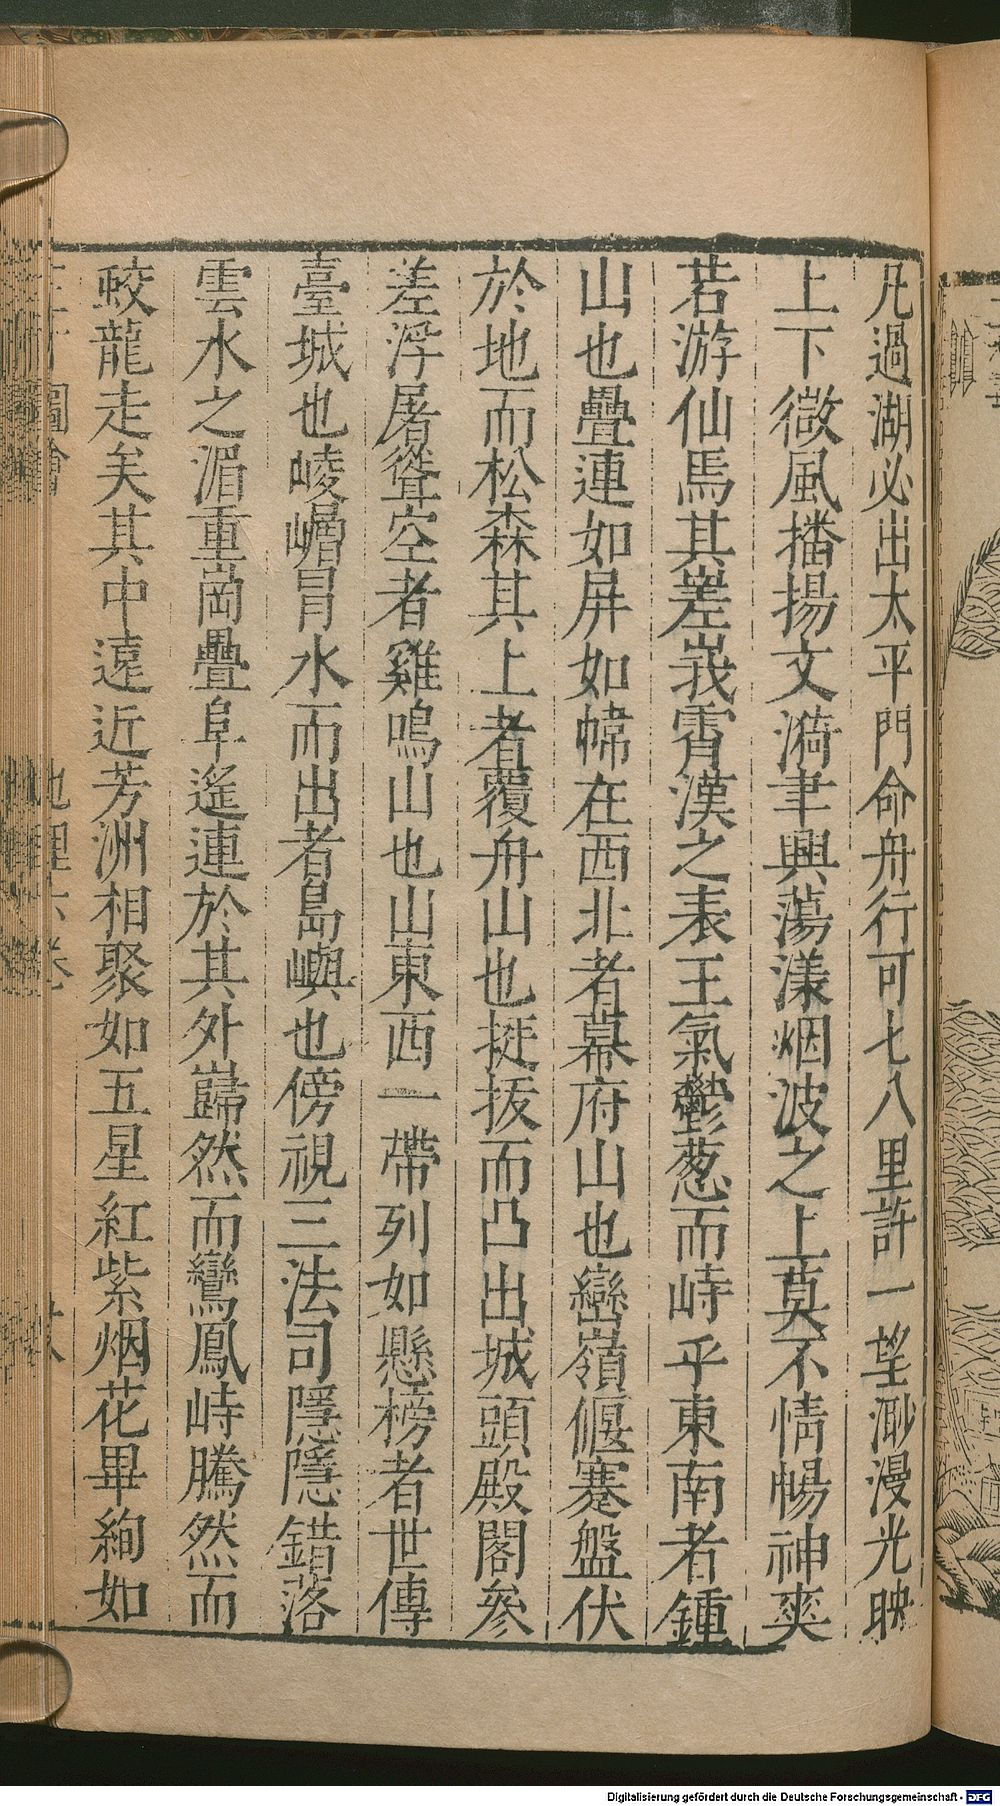 凡過湖必出太平門命舟行可七八里許一望渺漫光映
上下微風播揚文漪聿興蕩漾烟波之上莫不情暢神爽
若游仙焉其嵳峩霄漢之表王氣鬱葱而峙乎東南者鍾
山也疊連如屏如幃在西北者幕府山也巒嶺偃蹇盤伏
於地而松森其上者覆舟山也挺拔而凸出城頭殿閣參
差浮屠聳空者雞鳴山也山東西一帶列如懸榜者世傳
臺城也崚嶒冒水而出者島嶼也傍視三法司隱隱錯落
雲水之湄重崗疊阜遙連於其外巋然而鸞鳳峙騰然而
蛟龍走矣其中遠近芳洲相聚如五星紅紫烟花畢絢如
圖會 地理六卷
Digitalisierung gefördert durch die Deutsche Forschungsgemeinschaft - DFG